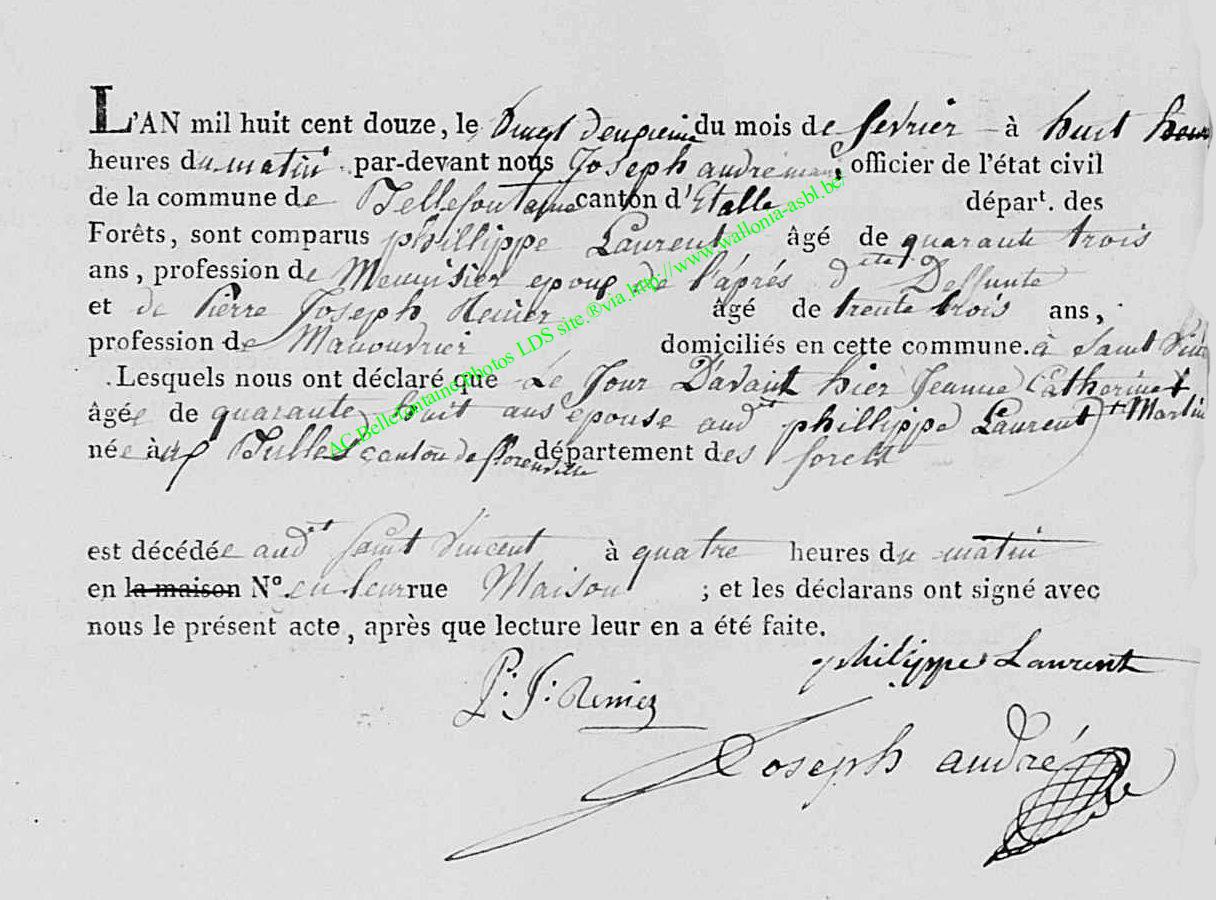 L'AN mil huit cent douze, le Vingt deuxieme du mois de fevrier à huit heures
heures du matin par-devant nous Joseph andré maire, officier de l'état civil
de la commune de Bellefontaine canton d'Etalle départ. des
Forêts, sont comparus phillippe Laurent âgé de quarante trois
ans, profession de Meunisier epoux de l'áprés dite Deffunte
et de Pierre Joseph Remier âgé de trente trois ans,
profession de Manouvrier domiciliés en cette commune. à Saint Vin
Lesquels nous ont déclaré que Le Jour D'avant hier Jeanne Catherine
âgée de quarante huit ans épouse audt phillippe Laurent Martin
née à Bulles canton de florenville département des forets
est décédée audt Saint Vincent à quatre heures du matin
en la maison N° en leur rue Maison ; et les déclarans ont signé avec
nous le présent acte, après que lecture leur en a été faite.
philippe Laurent
P: J: Remier
Joseph andré
AC.Bellefontaine Photos LDS site.®via.http://www.wallonia-asbl.be/